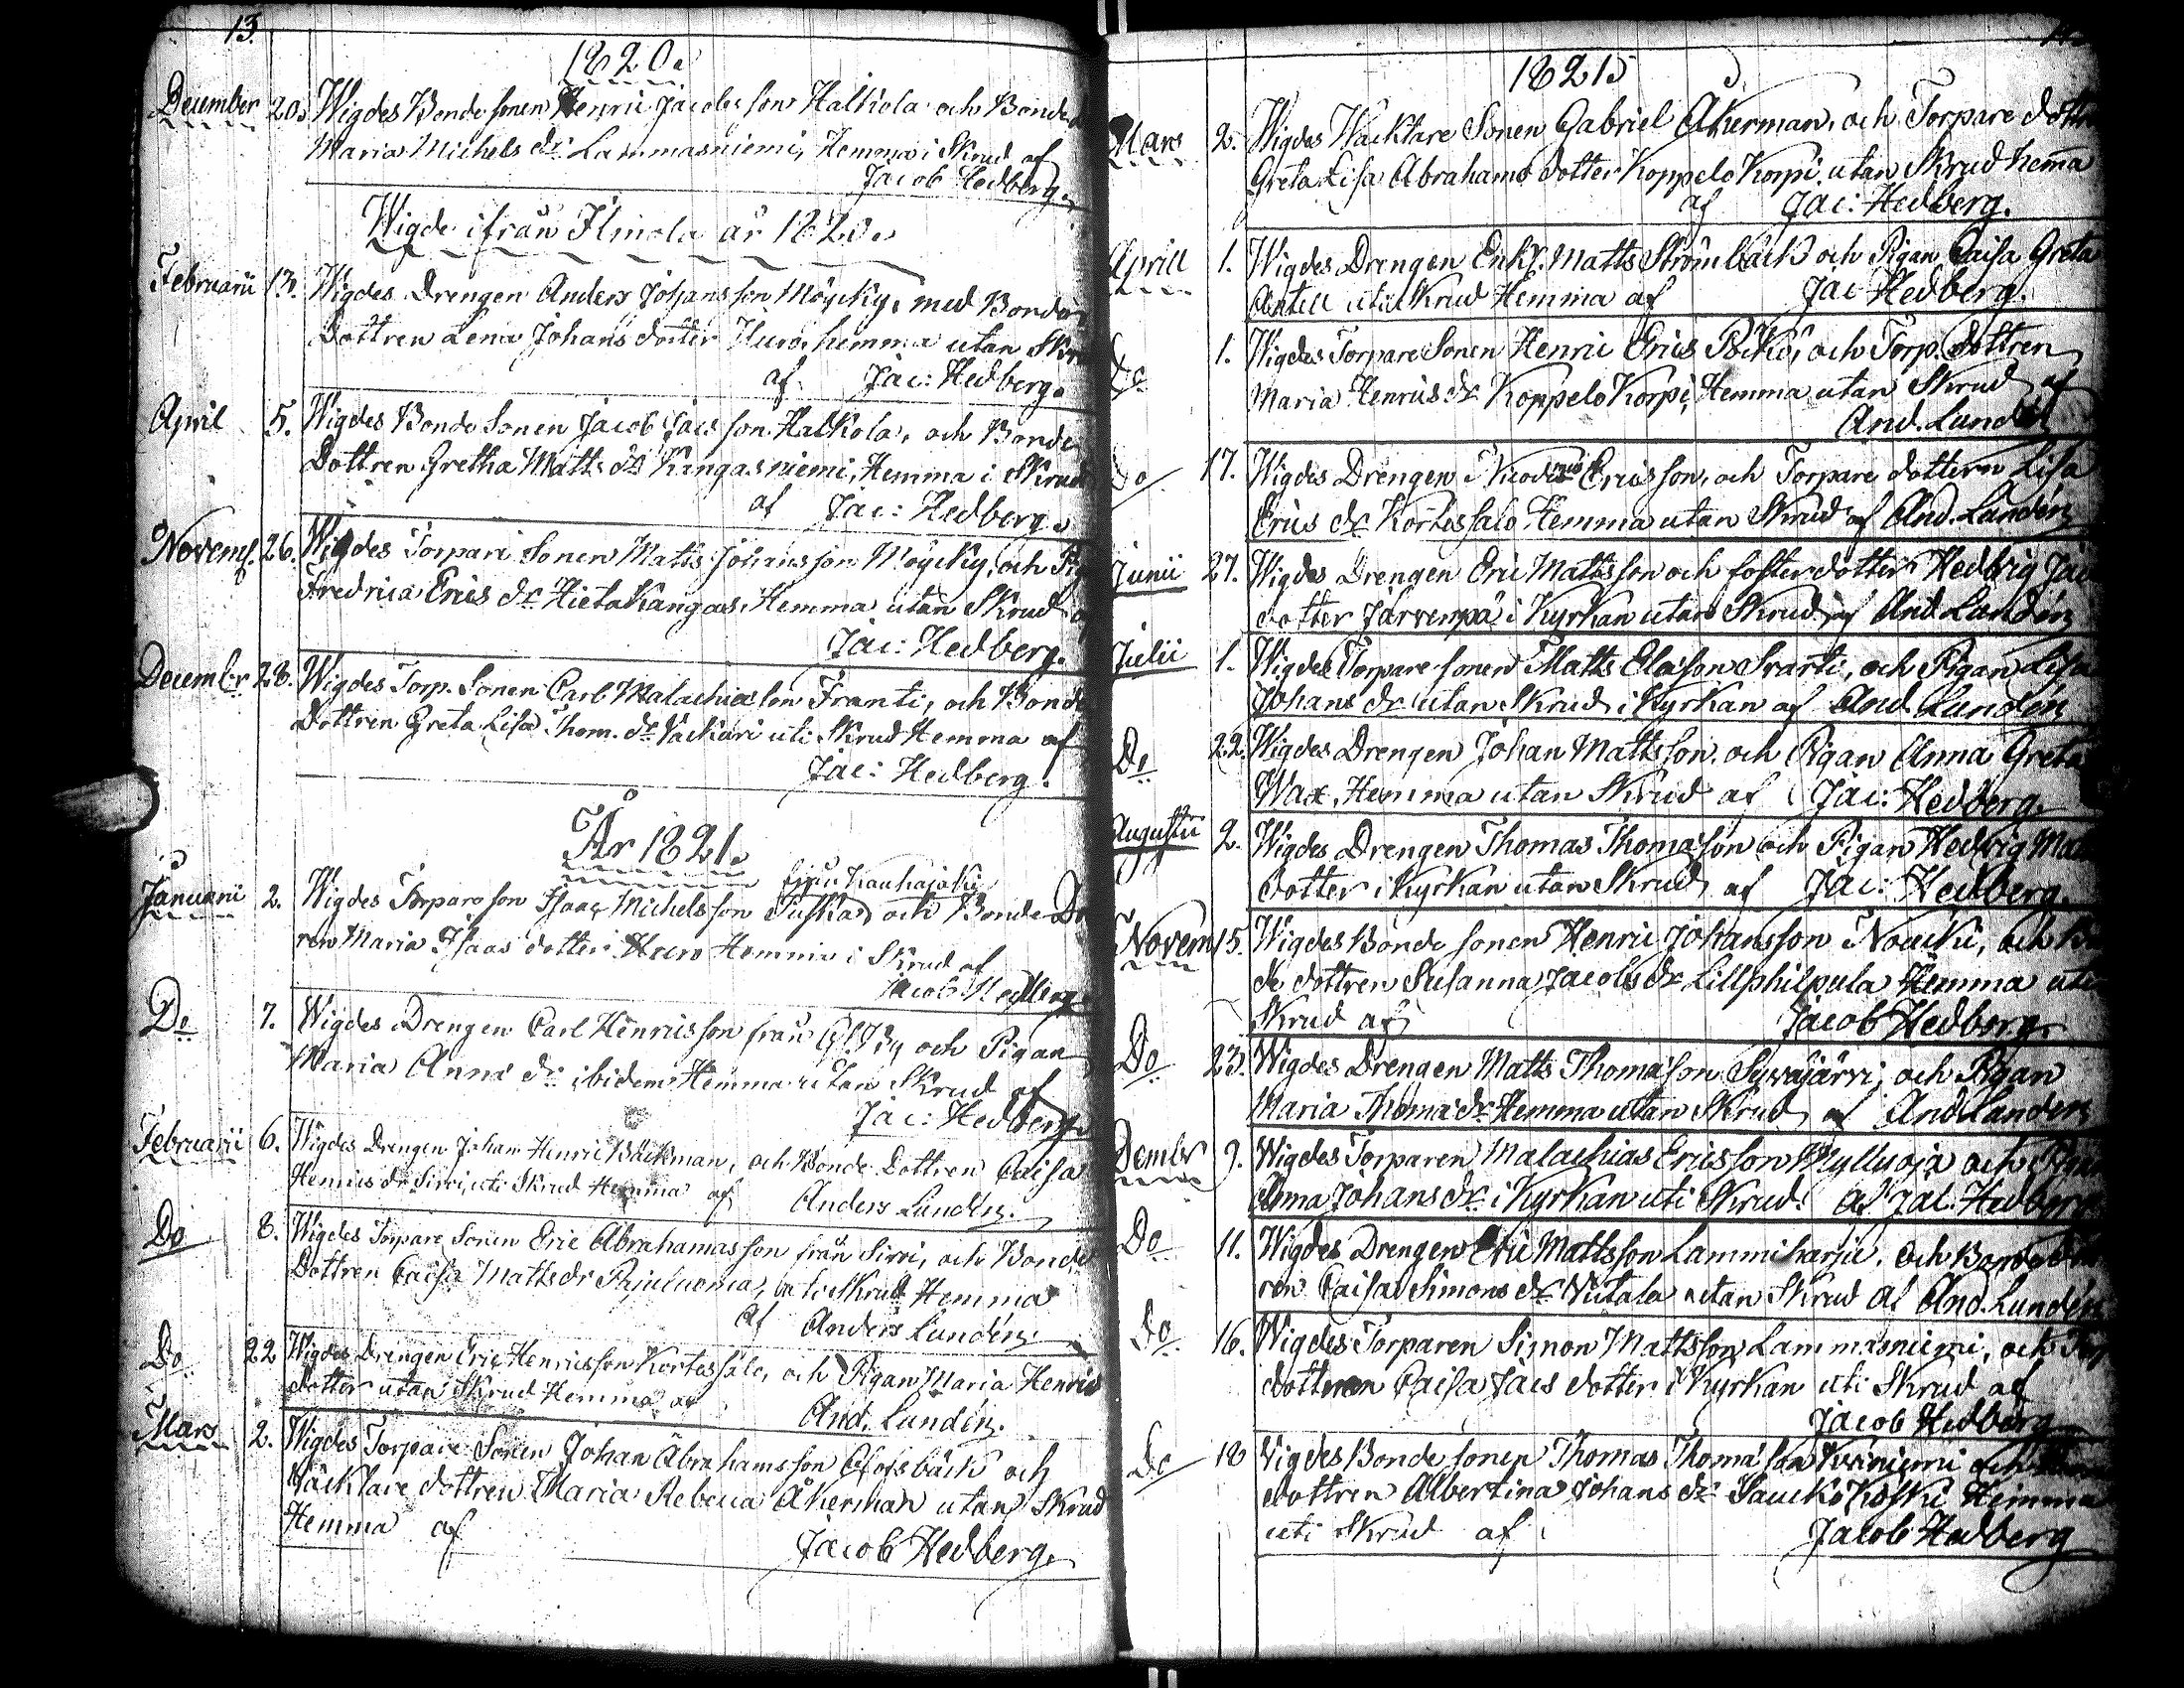 13.
1820.
December 20. Wigdes Bonde sonen Henric Jacobs son Halkola och Bonde
Maria Michels dr. Lammasniemi, Hemma i Skrud af
Jacob Hedberg.
Wigde ifrån Ilmola år 1820.
Februarii 13. Wigdes Drengen Anders Johansson Möycky, med Bonde
Dottren Lena Johans dotter Huro hemma utan Skru
af Jac: Hedberg.
April 5. Wigdes Bonde Sonen Jacob Jacs son Halkola, och Bonde
Dottren Gretha Matts dr Kangasniemi, Hemma i Skrud
af Jac: Hedberg.
Novemb. 26. Wigdes Torpare Sonen Matts Johansson Möycky, och Pig
Fredrica Erics dr Hietakangas, Hemma utan Skrud af
Jac: Hedberg.
December 28. Wigdes Torp. Sonen Carl Malachiason Franti, och Bonde
Dottren Greta Lisa Thom. dr Väckäri uti Skrud Hemma af
Jac: Hedberg.
År 1821.
från Kauhajoki
Januarii 2. Wigdes Torpare son Isaac Michelsson Tuska och Bonde Do
ren Maria Isaas dotter Huro Hemma i Skrud af
Jacob Hedberg
Do 7. Wigdes Drengen Carl Henricsson från och Pigan
Maria Anna dr: ibidem Hemma utan Skrud af
Jac: Hedberg.
Februarii 6. Wigdes Drengen Johan Henric Bäckman, och Bonde Dottren Caisa
Henrics dr Sirri, uti Skrud Hemma af Anders Lundén.
Do 8. Wigdes Torpare Sonen Eric Abrahamsson från Sirri, och Bonde
Dottren Caisa Matts dr Pajuluoma, uti Skrud Hemma
af Anders Lundén.
Do 22 Wigdes Drengen Eric Henricsson Kortessalo, och Pigan Maria Henric
dotter utan Skrud Hemma af And. Lundén.
Mars 2. Wigdes Torpare Sonen Johan Abrahamsson Olofsbäck och
Wäcktare dottren Maria Rebecca Åkerman utan Skrud
Hemma af Jacob Hedberg.
1821
Mars 2. Wigdes Wäcktare Sonen Gabriel Åkerman, och Torpare dottr
Greta Lisa Abrahams dotter Koppelo Korpi utan Skrud hema
af Jac: Hedberg.
Aprill 1. Wigdes Drengen Enkl. Matts Strömbäck och Pigan Caisa Greta
Antell uti Skrud Hemma af Jac Hedberg.
Do 1. Wigdes Torpare Sonen Henric Erics Påkö, och Torp. dottren
Maria Henrics dr Koppelo Korpi, Hemma utan Skrud af
And. Lundén
Do 17. Wigdes Drengen Ericsson, och Torpare dottern Lisa
Erics dr Kortessalo Hemma utan Skrud af And. Lundén
Junii 27. Wigdes Drengen Eric Mattsson och foster dotter Hedvig Jac
dotter Järvenpä i Kyrkan utan Skrud af And. Lundén
Julii 1. Wigdes Torpare sonen Matts Elasson Svarti, och Pigan Lisa
Johans dr utan Skrud i Kyrkan af And. Lundén
Do 22. Wigdes Drengen Johan Mattsson och Pigan Anna Greta
Wax, Hemma utan Skrud af Jac: Hedberg.
Augustii 2. Wigdes Drengen Thomas Thomason och Pigan Hedvig Matt
dotter i Kyrkan utan Skrud af Jac: Hedberg.
Novem 15. Wigdes Bonde sonen Henric Johansson Noucki, och Bon
de dottren Susanna Jacobs dr Lillphilpula Hemma uti
Skrud af Jacob Hedberg.
Do 23. Wigdes Drengen Matts Thomason Sywäjärvi, och Pigan
Maria Thoma dr Hemma utan Skrud af And Lundén
Dembr 9. Wigdes Torparen Malachias Ericsson Myllyoja och Pigan
Anna Johans dr i Kyrkan uti Skrud. af Jac. Hedberg
Do 11. Wigdes Drengen Eric Mattsson Lammiharju, och Bonde dott
ren Caisa Simons dr Nutala utan Skrud af And. Lundén
Do 16. Wigdes Torparen Simon Mattsson Lammasniemi, och
dotteren Caisa Jacs dotter i Kyrkan uti Skrud af
Jacob Hedberg
Do 18 Wigdes Bonde sonen Thomas Thoma son Kviniemi och
dottren Albertina Johans dr Sauckokoski Hemma
uti Skrud af Jacob Hedberg